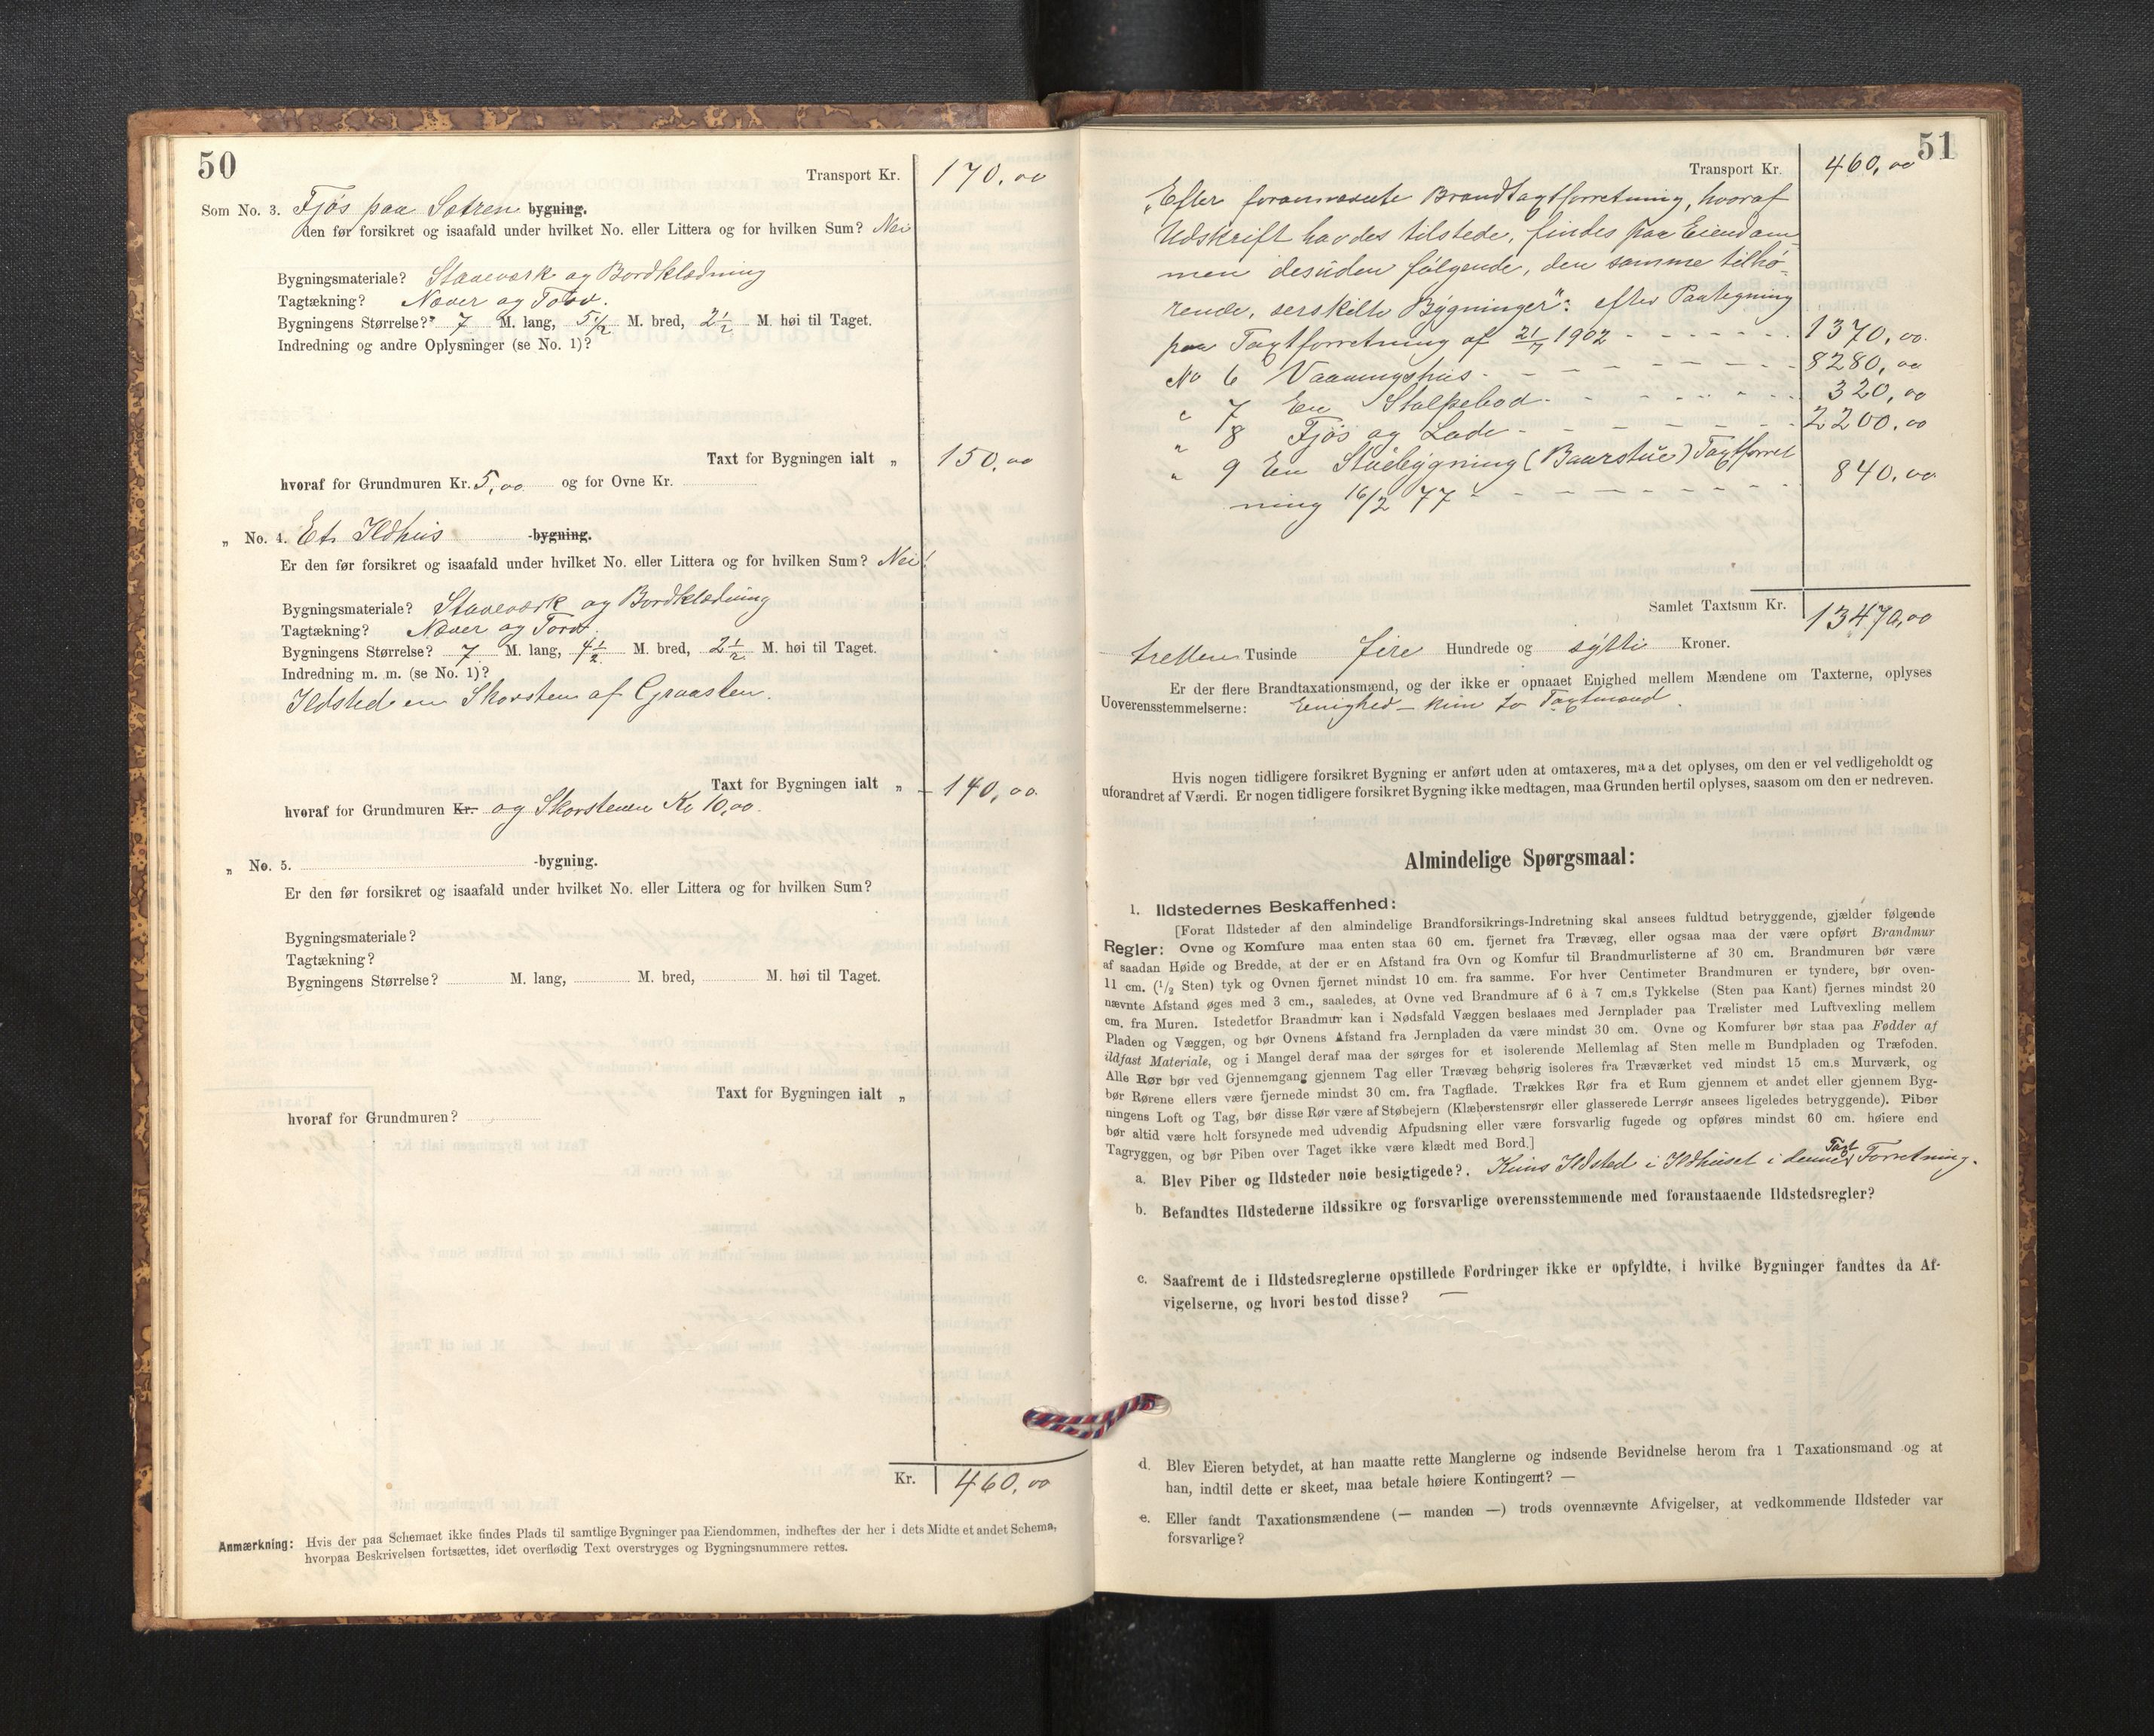 50
Transport Kr. 170,00
Som No. 3. Fjøs paa Sætren bygning.
den før forsikret og isaafald under hvilket No. eller Littera og for hvilken Sum? Nei
Bygningsmateriale? Staveværk og Bordklædning
Tagtækning? Næver og Torv.
Bygningens Størrelse? 7 M. lang, 5 1/2 M. bred, 2 1/2 M. høi til Taget.
Indredning og andre Oplysninger (se No. 1)?
Taxt for Bygningen ialt „ 150,00
hvoraf for Grundmuren Kr. 5,00 og for Ovne Kr.
„ No. 4. Et Ildhus -bygning.
Er den før forsikret og isaafald under hvilket No. eller Littera og for hvilken Sum? Nei!
Bygningsmateriale? Staveværk og Bordklædning
Tagtækning? Næver og Torv.
Bygningens Størrelse? 7 M. lang, 4 1/2 M. bred, 2 1/2 M. høi til Taget.
Indredning m. m. (se No. 1)?
Ildsted en Skorsten af Graasten.
Taxt for Bygningen ialt „ 140,00
hvoraf for Grundmuren Kr. og Skorstenen Kr 10,00.
„ No. 5. -bygning.
Er den før forsikret og isaafald under hvilket No. eller Littera og for hvilken Sum?
Bygningsmateriale?
Tagtækning?
Bygningens Størrelse? M. lang, M. bred, M. høi til Taget.
Taxt for Bygningen ialt „
hvoraf for Grundmuren?
Kr. 460,00
Anmærkning: Hvis der paa Schemaet ikke findes Plads til samtlige Bygninger paa Eiendommen, indheftes der her i dets Midte et andet Schema,
hvorpaa Beskrivelsen fortsættes, idet overflødig Text overstryges og Bygningsnummere rettes.
51
Transport Kr. 460,00
„Efter foranværete Brandtaxtforretning, hvoraf
Udskrift havdes tilstede, findes paa Eiendom-
men desuden følgende, den samme tilhø-
rende, serskilte Bygninger": efter Paategning
paa Taxtforretning af 21/7 1902 - - - - - - 1370,00.
No 6 Vaaningshus - - - - - - 8280,00
" 7 En Stolpebod - - - - - - 320,00
" 8 Fjøs og Lade - - - - - - 2200,00
" 9 En Stuebygning (Baurstue) Taxtforret
ning 16/2 77 - - - - - - 840,00
Samlet Taxtsum Kr. 13470,00
tretten Tusinde fire Hundrede og sytti Kroner.
Er der flere Brandtaxationsmænd, og der ikke er opnaaet Enighed mellem Mændene om Taxterne, oplyses
Uoverensstemmelserne: Eenighed – kun to Taxtmænd.
Hvis nogen tidligere forsikret Bygning er anført uden at omtaxeres, maa det oplyses, om den er vel vedligeholdt og
uforandret af Værdi. Er nogen tidligere forsikret Bygning ikke medtagen, maa Grunden hertil oplyses, saasom om den er nedreven.
Almindelige Spørgsmaal:
1. Ildstedernes Beskaffenhed:
[Forat Ildsteder af den almindelige Brandforsikrings-Indretning skal ansees fuldtud betryggende, gjælder følgende
Regler: Ovne og Komfure maa enten staa 60 cm. fjernet fra Trævæg, eller ogsaa maa der være opført Brandmur
af saadan Høide og Bredde, at der er en Afstand fra Ovn og Komfur til Brandmurlisterne af 30 cm. Brandmuren bør være
11 cm. (1/2 Sten) tyk og Ovnen fjernet mindst 10 cm. fra samme. For hver Centimeter Brandmuren er tyndere, bør oven-
nævnte Afstand øges med 3 cm., saaledes, at Ovne ved Brandmure af 6 à 7 cm.s Tykkelse (Sten paa Kant) fjernes mindst 20
cm. fra Muren. Istedetfor Brandmur kan i Nødsfald Væggen beslaaes med Jernplader paa Trælister med Luftvexling mellem
Pladen og Væggen, og bør Ovnens Afstand fra Jernpladen da være mindst 30 cm. Ovne og Komfurer bør staa paa Fødder af
ildfast Materiale, og i Mangel deraf maa der sørges for et isolerende Mellemlag af Sten mellem Bundpladen og Træfoden.
Alle Rør bør ved Gjennemgang gjennem Tag eller Trævæg behørig isoleres fra Træværket ved mindst 15 cm.s Murværk, og
bør Rørene ellers være fjernede mindst 30 cm. fra Tagflade. Trækkes Rør fra et Rum gjennem et andet eller gjennem Byg-
ningens Loft og Tag, bør disse Rør være af Støbejern (Klæberstensrør eller glasserede Lerrør ansees ligeledes betryggende). Piber
bør altid være helt forsynede med udvendig Afpudsning eller være forsvarlig fugede og opføres mindst 60 cm. høiere end
Tagryggen, og bør Piben over Taget ikke være klædt med Bord.]
a. Blev Piber og Ildsteder nøie besigtigede? Kuns Ildsted i Ildhuset i denne Taxt Forretning.
b. Befandtes Ildstederne ildssikre og forsvarlige overensstemmende med foranstaaende Ildstedsregler?
c. Saafremt de i Ildstedsreglerne opstillede Fordringer ikke er opfyldte, i hvilke Bygninger fandtes da Af-
vigelserne, og hvori bestod disse? —
d. Blev Eieren betydet, at han maatte rette Manglerne og indsende Bevidnelse herom fra 1 Taxationsmand og at
han, indtil dette er skeet, maa betale høiere Kontingent? —
e. Eller fandt Taxationsmændene (— manden —) trods ovennævnte Afvigelser, at vedkommende Ildsteder var
forsvarlige?